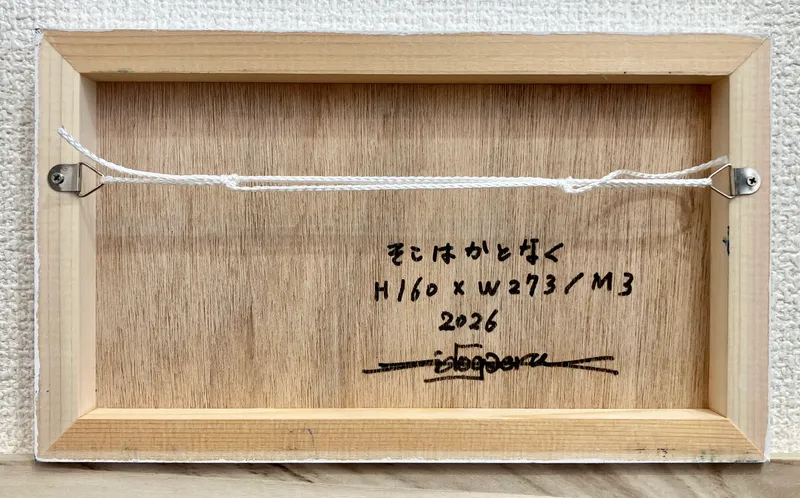 そこはかとなく
H160 × W273 / M3
2026